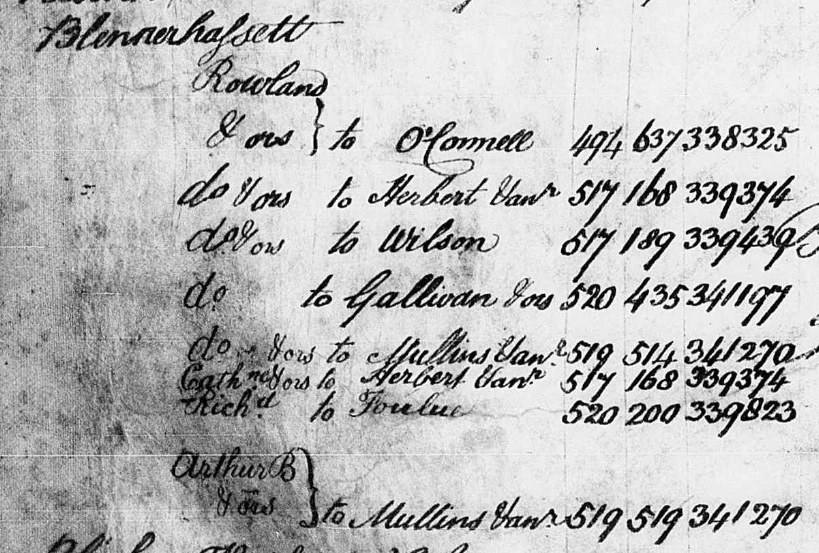 Blennerhassett
Rowland
& ors } to O'Connell 494 637 338325
do & ors to Herbert & anr 517 168 339374
do & ors to Wilson 517 189 339439
do to Gallivan & ors 520 435 341197
do & ors to Mullins & anr 519 514 341270
Cathne & ors to Herbert & anr 517 168 339374
Richd to 520 200 339823
Arthur B
& ors } to Mullins & anr 519 519 341270